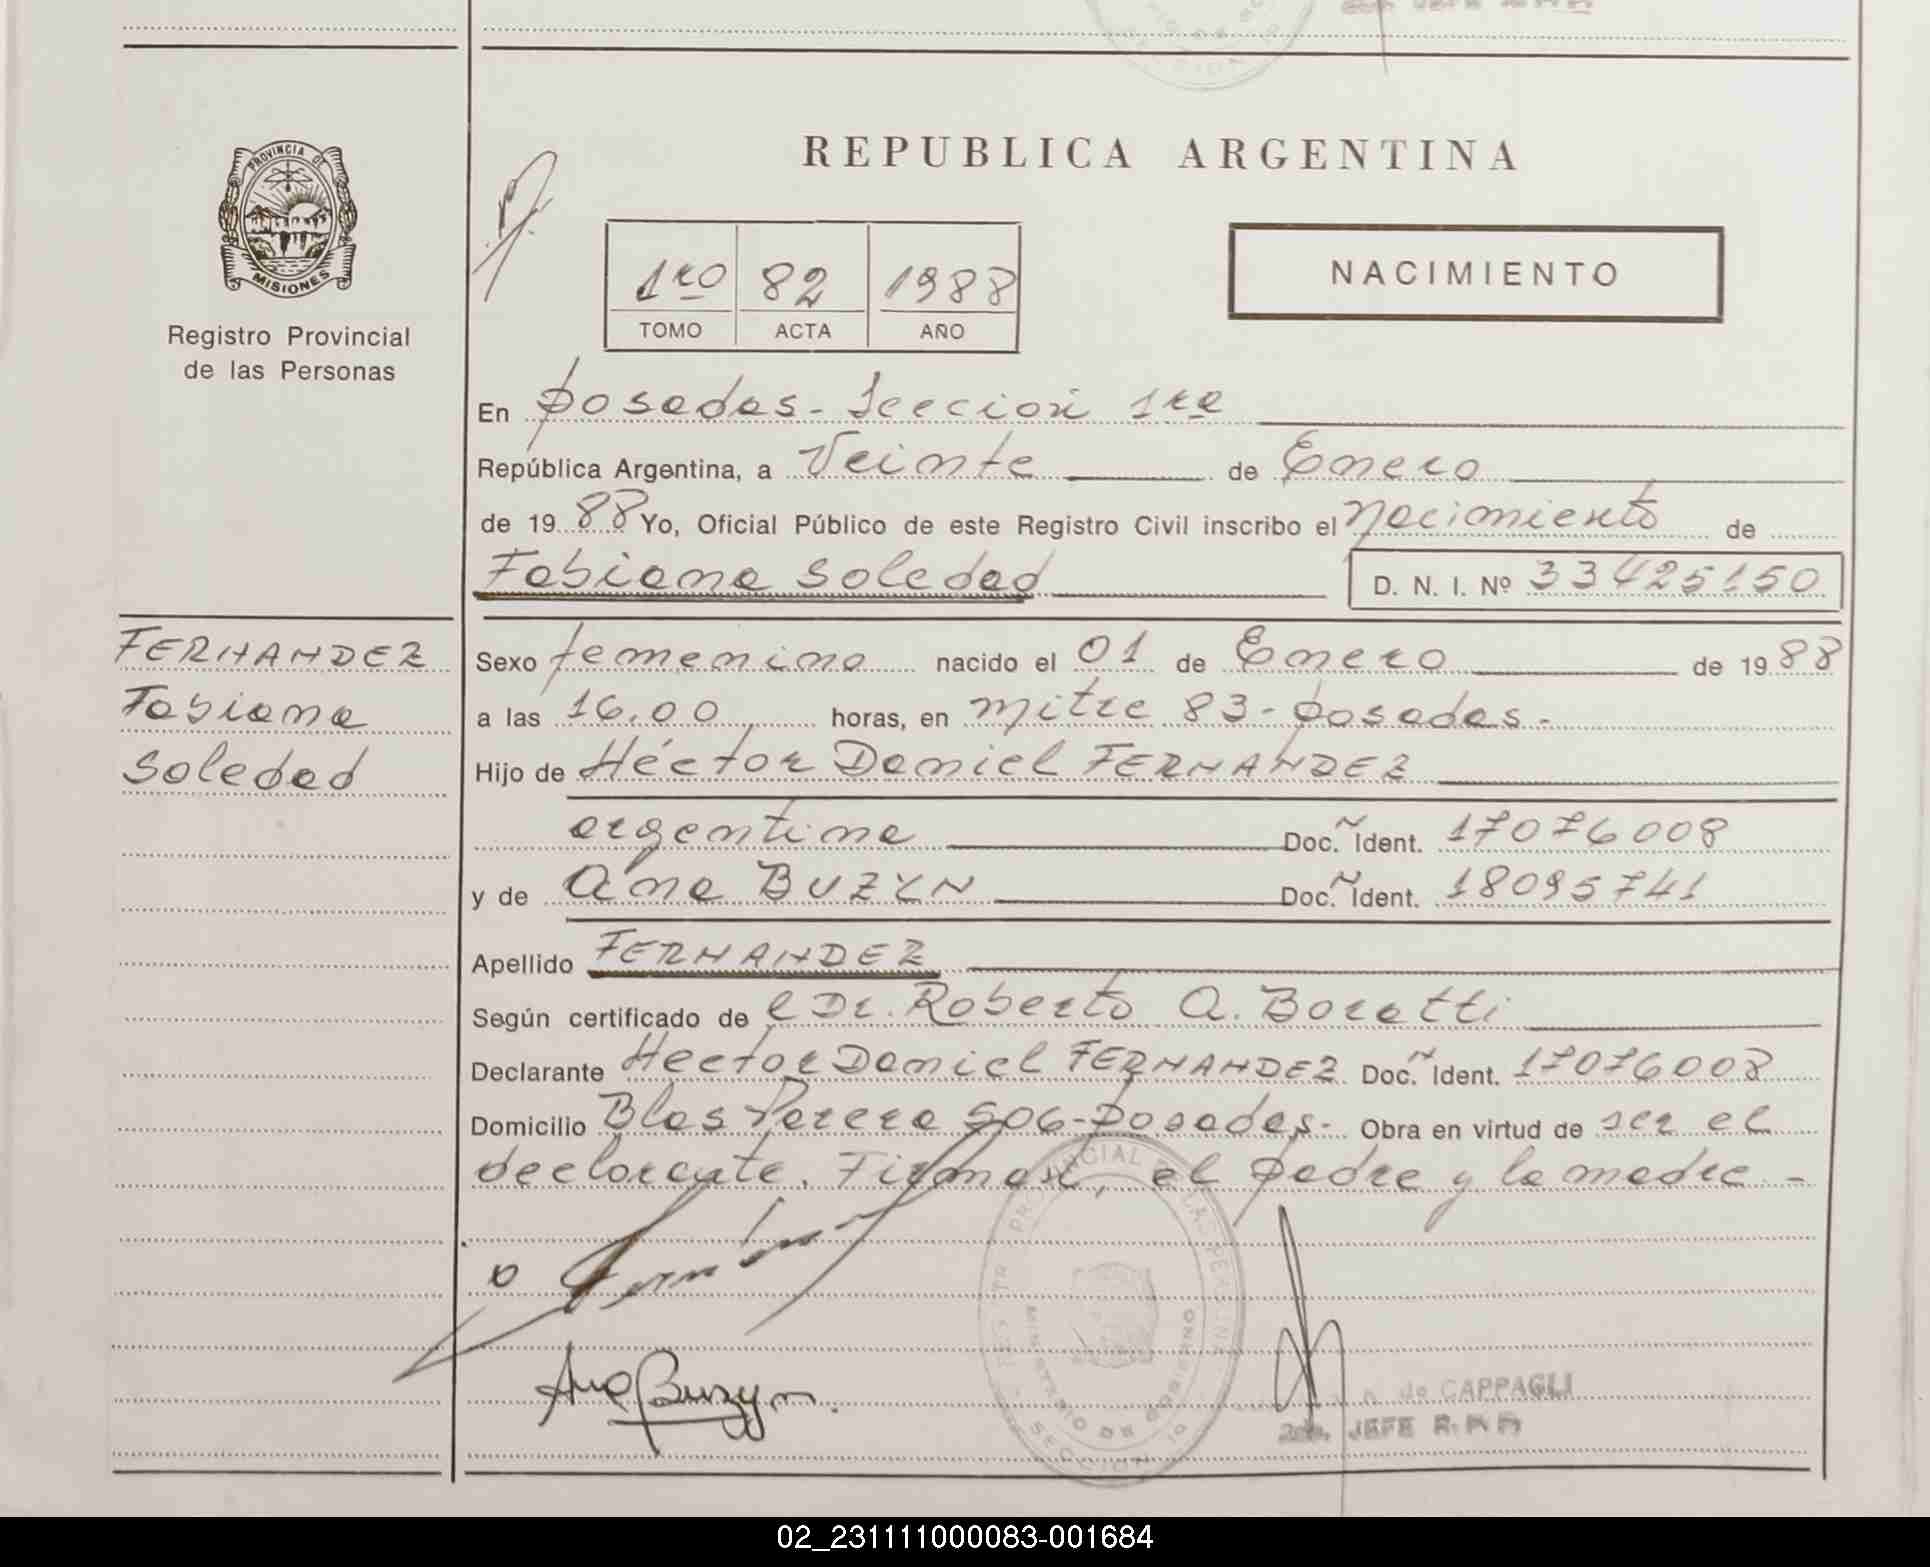 REPUBLICA ARGENTINA
PROVINCIA DE
MISIONES
Registro Provincial
de las Personas
1ro 82 1988
TOMO ACTA AÑO
NACIMIENTO
En Posadas - Sección 1ra
República Argentina, a Veinte de Enero
de 1988 Yo, Oficial Público de este Registro Civil inscribo el Nacimiento de
Fabiana Soledad D. N. I. Nº 33425150
FERNANDEZ
Fabiana
Soledad
Sexo femenino nacido el 01 de Enero de 1988
a las 16.00 horas, en Mitre 83 - Posadas -
Hijo de Héctor Daniel FERNANDEZ
argentina Doc. Ident. 17076008
y de Ana BUZYN Doc. Ident. 18095741
Apellido FERNANDEZ
Según certificado de l Dr. Roberto A. Boratti
Declarante Hector Daniel FERNANDEZ Doc. Ident. 17076008
Domicilio Blas Parera 506 - Posadas - Obra en virtud de ser el
declarante. Firman, el padre y la madre -
Ana Buzyn.
MINISTERIO DE GOBIERNO
SECCION 1a
de CAPPAGLI
2do. JEFE R.P.P.
02_231111000083-001684